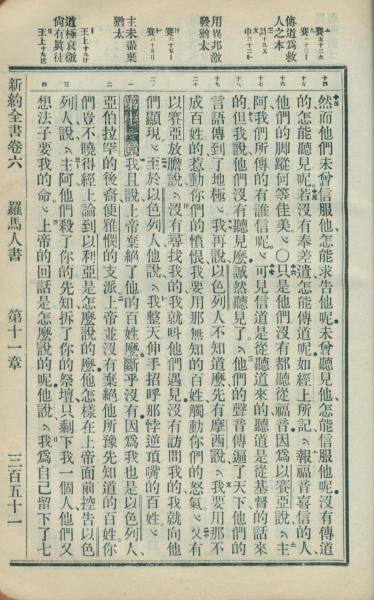 傳道為救
人之本
用異邦激
發猶太
主未盡棄
猶太
道極衰微
尚有眞徒
然而他們未曾信服他怎能求告他呢未曾聽見他怎能信服他呢沒有傳道
的怎能聽見呢若沒有奉差遣怎能傳道呢如經上所記、報福音喜信的人
他們的脚蹤何等佳美、○只是他們沒有都聽從福音因爲以賽亞說、主
阿我們所傳的有誰信呢。可見信道是從聽道來的聽道是從基督的話來
的但我說他們沒有聽見麼誠然聽見了。他們的聲音傳遍了天下他們的
言語傳到了地極、我再說以色列人不知道麼先有摩西說、我要用那不
成百姓的惹動你們的憤恨我要用那無知的百姓觸動你們的怒氣、又有
以賽亞放膽說、沒有尋找我的我就呌他們遇見沒有訪問我的我就向他
們顯現、至於以色列人他說、我整天伸手招呼那悖逆頂嘴的百姓、
我且說上帝棄絕了他的百姓麼斷乎沒有因爲我也是以色列人、
亞伯拉罕的後裔便雅憫的支派上帝並沒有棄絕他所豫先知道的百姓你
們豈不曉得經上論到以利亞是怎麼說的麼他怎樣在上帝面前控告以色
列人說、主阿他們殺了你的先知拆了你的祭壇只剩下我一個人他們又
想法子要我的命、上帝的回話是怎麼說的呢他說、我爲自己留下了七
新約全書卷六 羅馬人書 第十一章 三百五十一